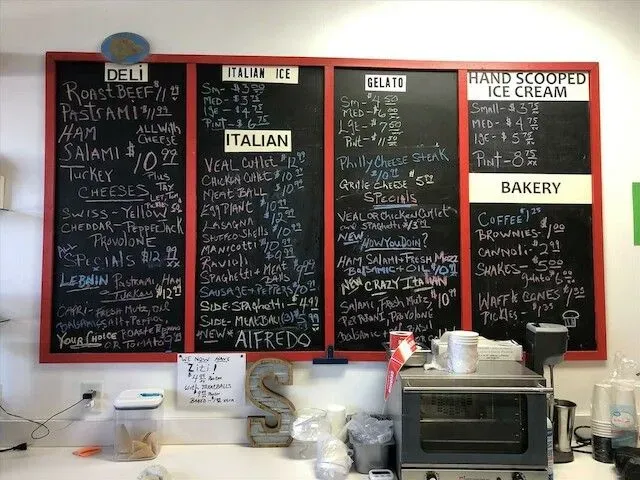 DELI
ROAST BEEF $11.99
PASTRAMI $11.99
HAM
ALL WITH CHEESE
SALAMI $10.99
TURKEY
PLUS TAX
CHEESES
SWISS - YELLOW
CHEDDAR - PEPPER JACK
PROVOLONE
ALL
SPECIALS $12.99
PASTRAMI, HAM
TURKEY $12.99
CAPRI - FRESH MUTZ, OIL
BALSAMIC, SALT + PEPPER
YOUR CHOICE ROASTED PEPPERS
OR TOMATO
ITALIAN ICE
SM -
MED - $3.75
LGE -
PINT - $6.75
ITALIAN
VEAL CUTLET $12.99
CHICKEN CUTLET $10.99
MEAT BALL $10.99
EGGPLANT $10.99
LASAGNA
STUFFED SHELLS
MANICOTTI
RAVIOLI
SPAGHETTI + MEAT
SAUSAGE + PEPPERS
SIDE - SPAGHETTI $4.99
SIDE - MEATBALL
NEW ALFREDO
GELATO
SM - $4.50
MED - $6.00
LGE - $7.00
PINT - $11.00
PHILLY CHEESE STEAK
$10.99
GRILLE CHEESE $5.00
SPECIALS
VEAL OR CHICKEN CUTLET
AND SPAGHETTI
NEW HOW YOU DOIN?
HAM SALAMI + FRESH MOZZ
BALSAMIC + OIL $10.99
NEW CRAZY ITALIAN
SALAMI, FRESH MUTZ,
PEPPERONI, PROVOLONE
HAND SCOOPED
ICE CREAM
SMALL - $3.75
MED - $4.75
LGE - $5.75
PINT - 8.75
BAKERY
COFFEE $1.25
BROWNIES - $1.00
CANNOLI - $2.99
SHAKES - $5.00
GELATO $6.00
WAFFLE CONES
PICKLES -
WE NOW HAVE
ZITI!
WITH MEATBALLS
S